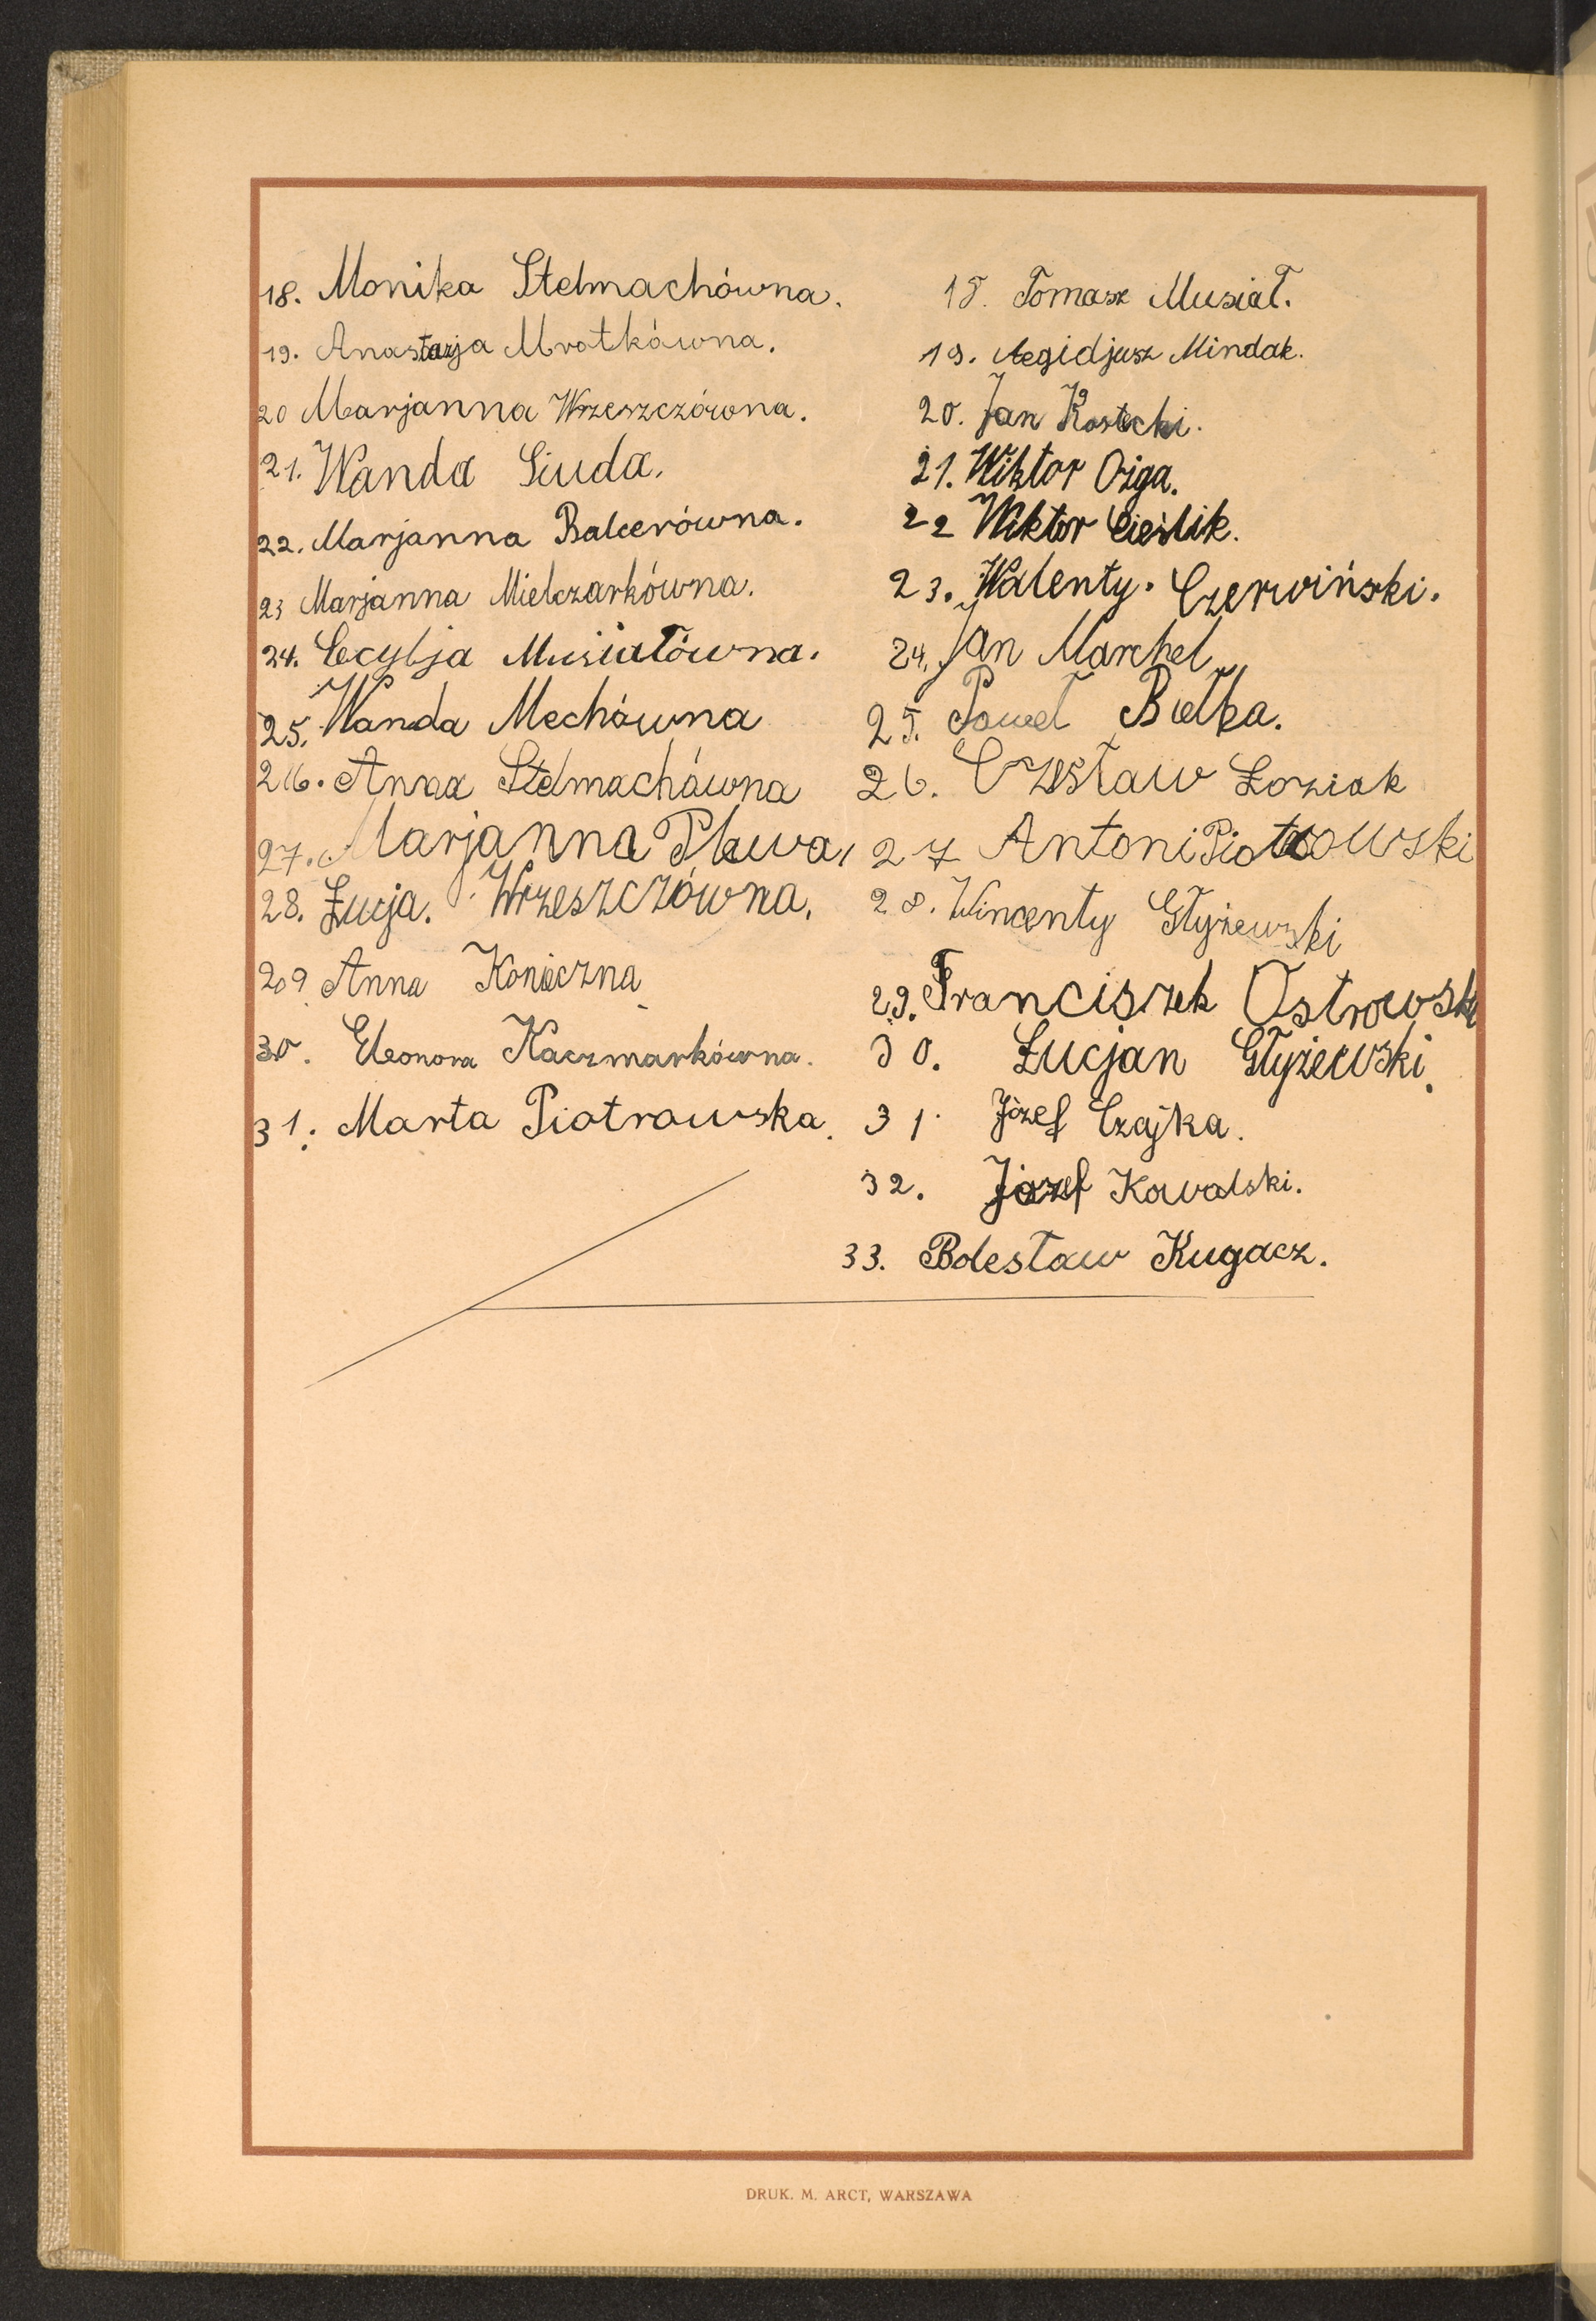 18. Monika Stelmachówna.
19. Anastazja Mrotkówna.
20 Marjanna Wrzeszczówna.
21. Wanda Siuda.
22. Marjanna Balcerówna.
23 Marjanna Mielczarkówna.
24. Cecylja Musiałówna.
25. Wanda Mechówna
26. Anna Stelmachówna
27. Marjanna Pławа,
28. Łucja. Wrzeszczówna.
29 Anna Konieczna
30. Eleonora Kaczmarkówna.
31. Marta Piotrowska.
18. Tomasz Musiał.
19. Aegidjusz Mindak.
20. Jan Kostecki.
21. Wiktor Oziga.
22 Wiktor Cieślik.
23. Walenty. Czerwiński.
24. Jan Marchel
25. Paweł Bełka.
26. Czesław Łoziak
27 Antoni Piotrowski
28. Wincenty Głyżewski
29. Franciszek Ostrowski
30. Łucjan Głyżewski.
31. Józef Czajka.
32. Józef Kowalski.
33. Bolesław Kugacz.
DRUK. M. ARCT, WARSZAWA